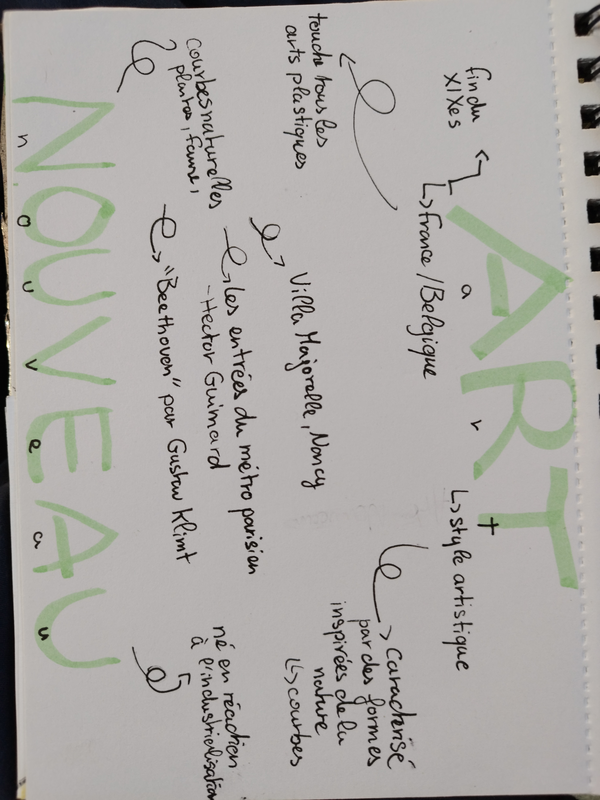 ART
a r t
fin du
XIXes
France/Belgique
style artistique
touche tous les
arts plastiques
caractérisé
par des formes
inspirées de la
nature
courbes
Villa Majorelle, Nancy
Les entrées du métro parisien
- Hector Guimard
"Beethoven" par Gustav Klimt
courbes naturelles
plantes, femme,
né en réaction
à l'industrialisation
NOUVEAU
n o u v e a u